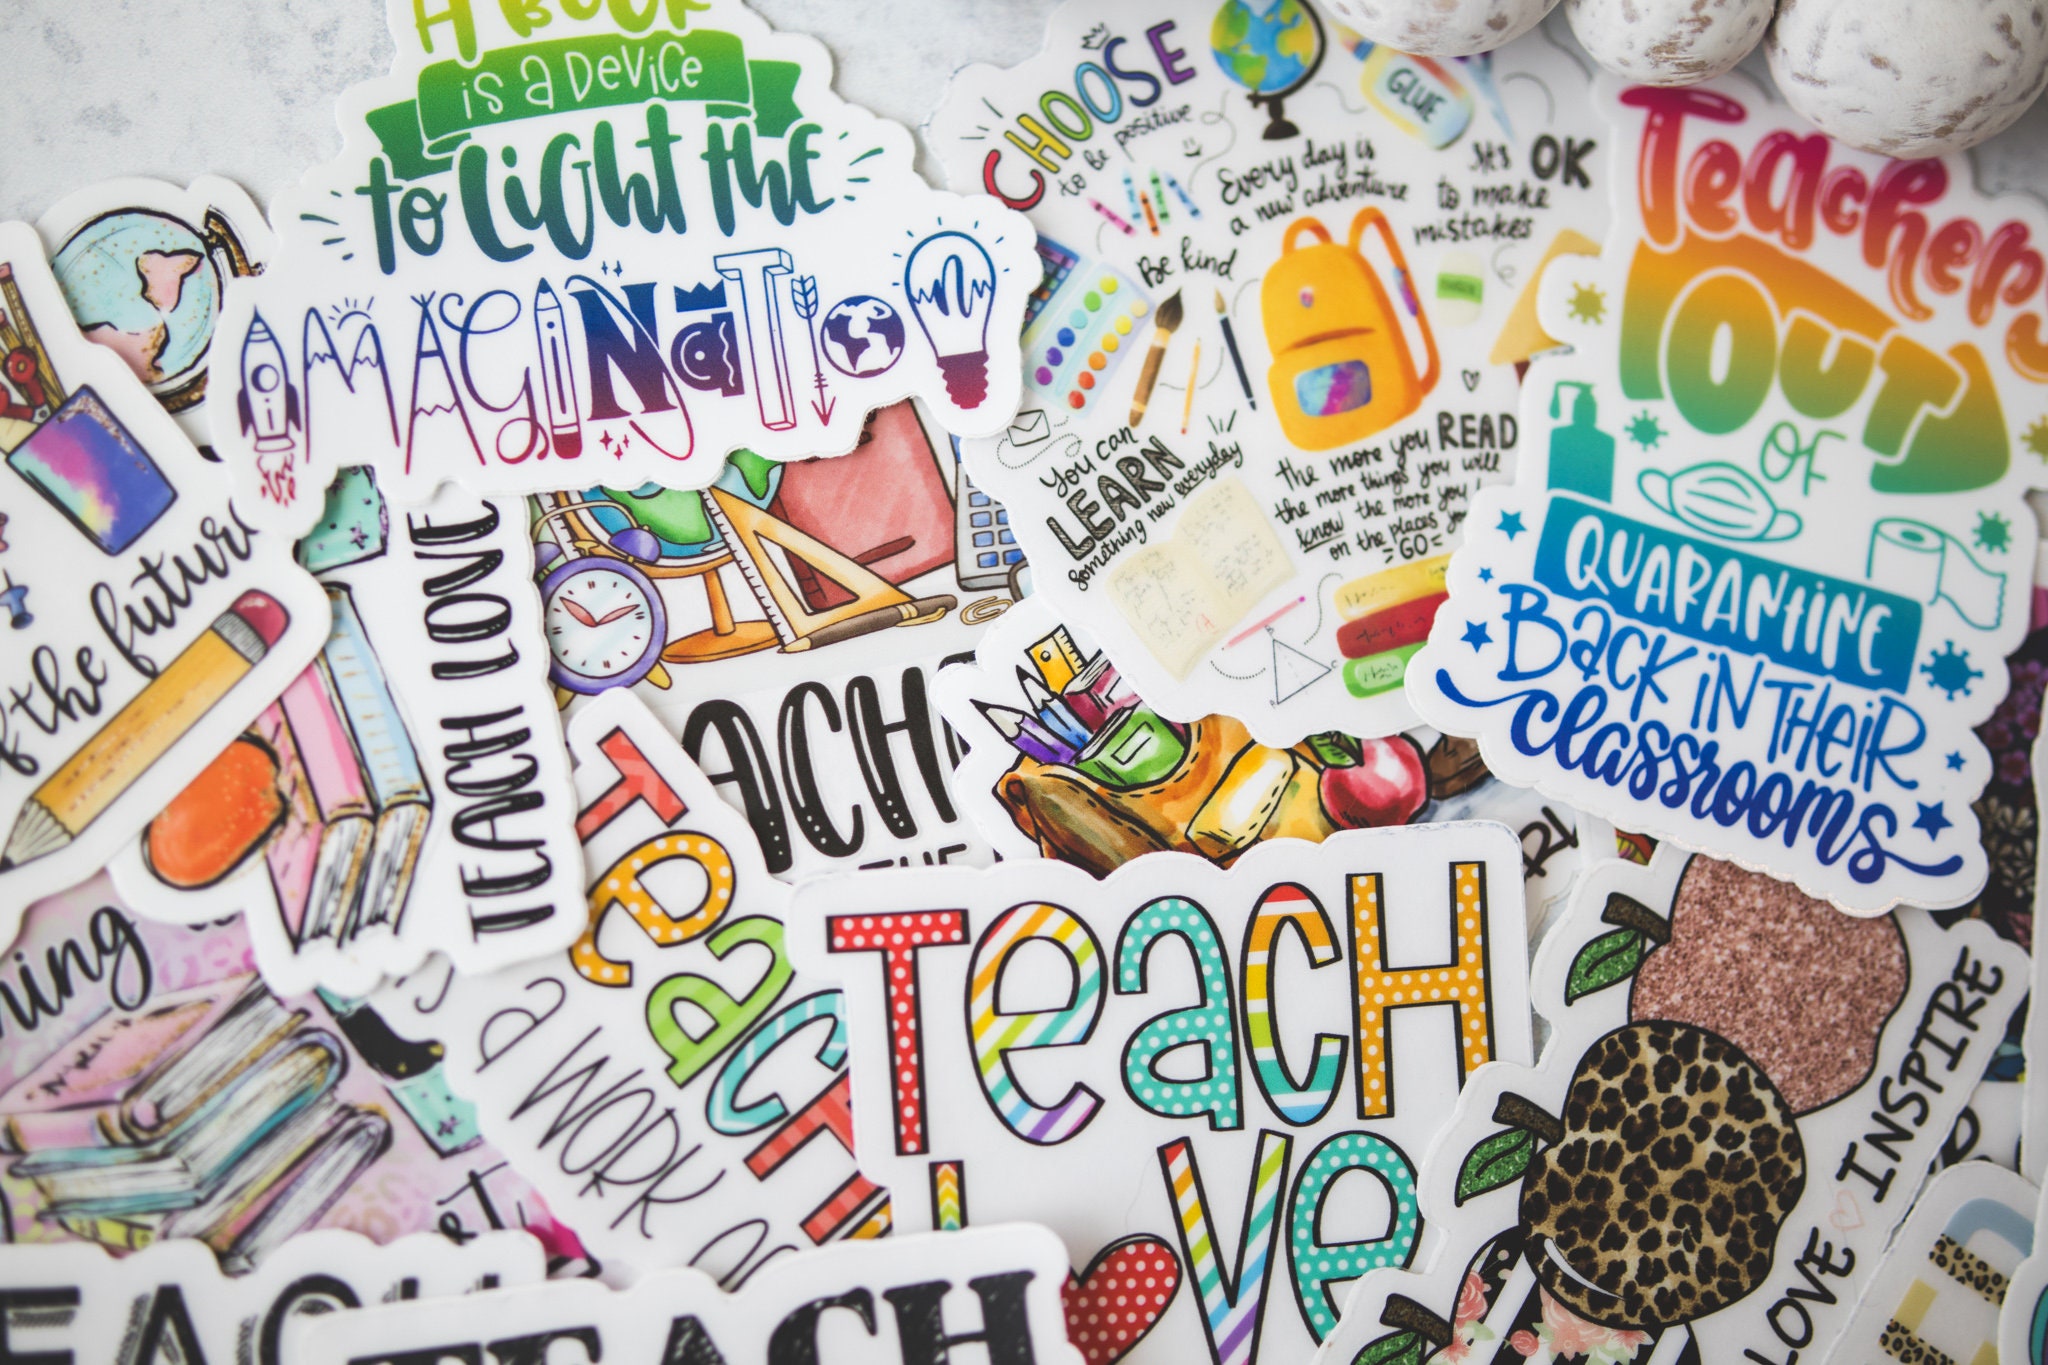 A BOOK
is a DEVICE
to LIGHT THE
IMAGINATION
CHOOSE
to be positive
GLUE
Every day is
a new adventure
It's OK
to make
mistakes
Be kind
You can
LEARN
something new everyday
the more you READ
the more things you will
know the more you
on the places
GO
Teachers
OUT
OF
QUARANTINE
BACK IN THEIR
classrooms
the future
TEACH LOVE
ACH
THE
TEACH
a WORK
TEACH
LOVE
LOVE INSPIRE
EACH
TEACH